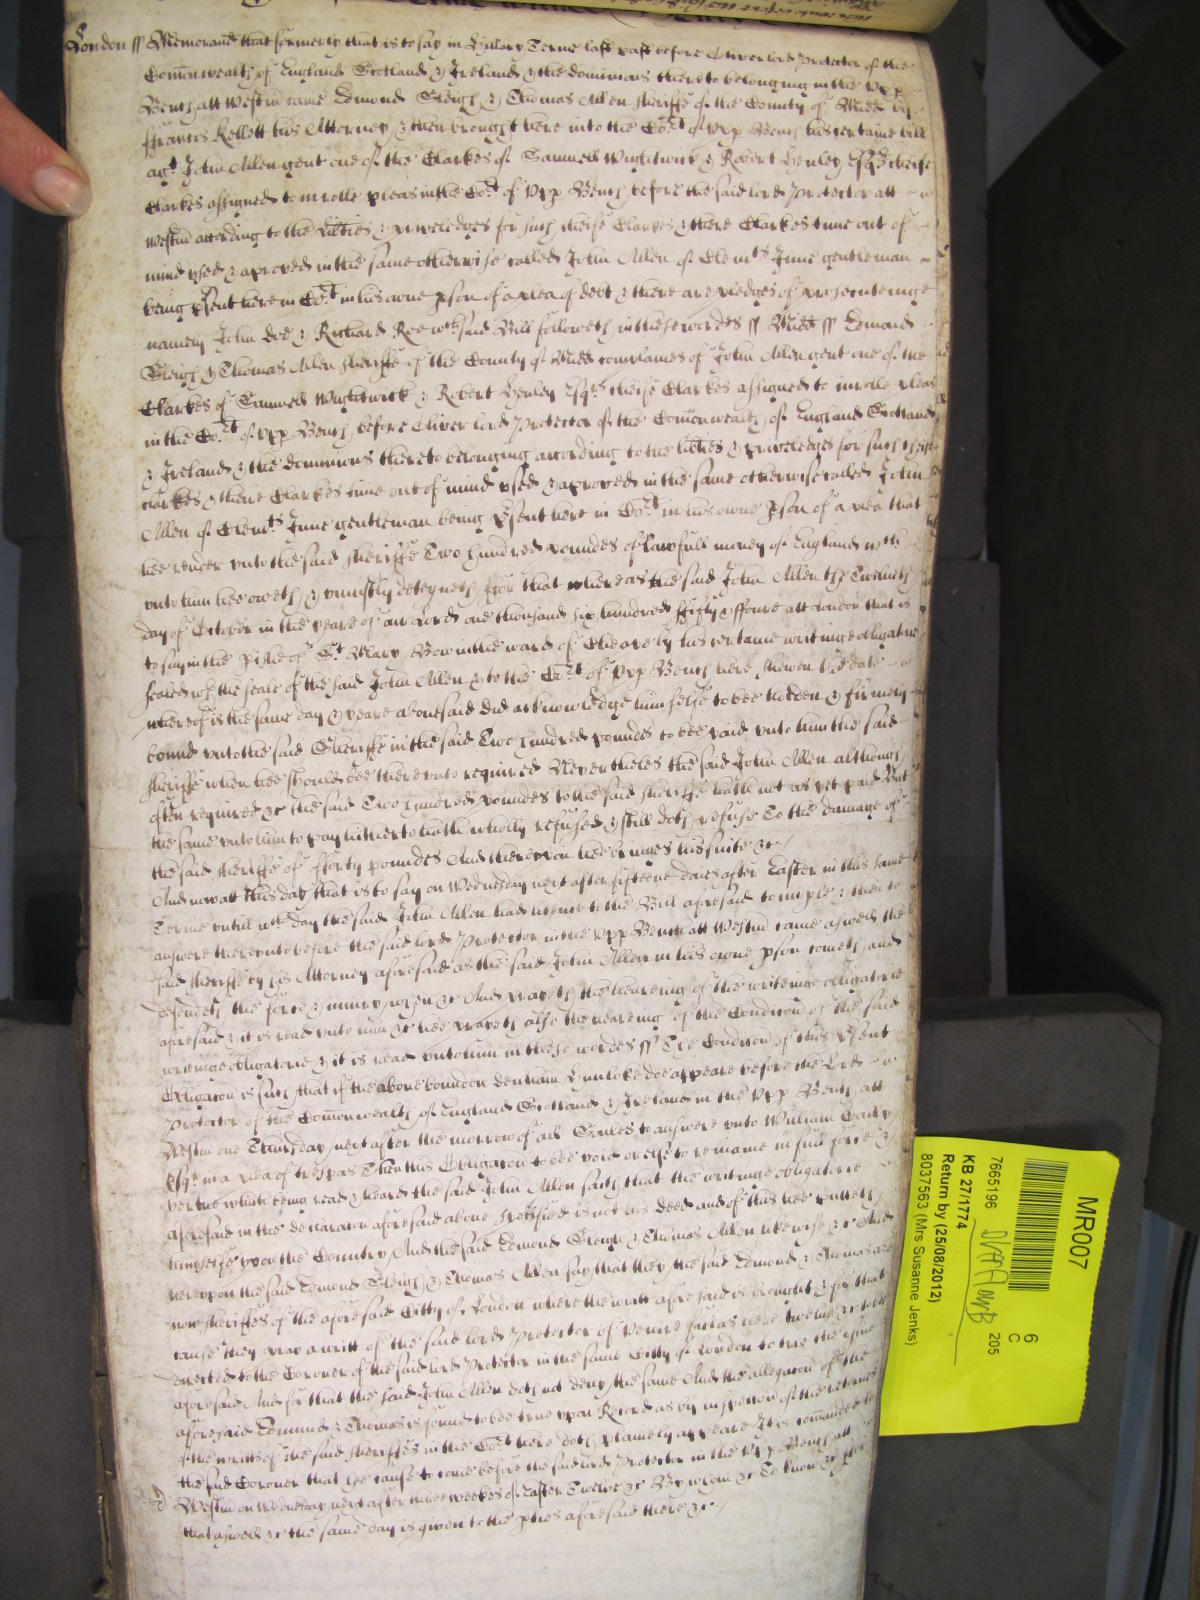 London ss Memorand that formerly that is to say in Hillary Terme last past before Oliver lord Protector of the
Comonwealth of England Scotland & Ireland & the dominions thereto belonging in the Upp
Bench att Westm came Edmond Sleigh & Thomas Allen sheriffe of the County of Midd by
ffrancis Kellett his Attorney & then brought here into the Cort of Upp Bench his certaine bill
agt John Allen gent one of the Clarkes of Samuell Wightwick & Robert Henley Esqrs cheife
Clarkes assigned to inrolle pleas in the Cort of Upp Bench before the said lord Protector att
Westm according to the libties & priveledges for such cheife Clarkes & there Clarkes time out of
mind used & aproved in the same otherwise called John Allen of Clemts Inne gentleman
being psent here in Cort in his owne pson of a plea of debt & there are pledges of prosecuteinge
namely John Doe & Richard Roe wch said Bill followeth in these wordes ss Midd ss Edmond
Sleigh & Thomas Allen sheriffe of the County of Midd complaines of John Allen gent one of the
Clarkes of Samuell Wightwick & Robert Henley Esqrs cheife Clarkes assigned to inrolle pleas
in the Cort of Upp Bench before Oliver lord Protector of the Comonwealth of England Scotland
& Ireland & the dominions thereto belonging according to the libties & priveledges for such cheife
Clarkes & there Clarkes time out of mind used & aproved in the same otherwise called John
Allen of Clemts Inne gentleman being psent here in Cort in his owne pson of a plea that
hee render unto the said sheriffe Two hundred poundes of lawfull money of England wch
unto him hee oweth & uniustly deteyneth ffor that whereas the said John Allen the Twelueth
day of October in the yeare of our Lord one thousand six hundred ffifty & ffoure att London that is
to say in the pishe of St Mary Bow in the ward of Cheape by his certaine writinge obligatorie
sealed wth the seale of the said John Allen & to the Cort of Upp Bench here shewen the date
whereof is the same day & yeare abovesaid did acknowledge himselfe to bee holden & firmely
bound unto the said Sheriffe in the said Two hundred poundes to bee paid unto him the said
sheriffe when hee should bee thereunto required Nevertheles the said John Allen although
often required &c the said Two hundred poundes to the said sheriffe hath not as yet paid But
the same unto him to pay hitherto hath wholly refused & still doth refuse To the damage of
the said sheriffe of fforty poundes And thereupon hee bringes his suite &c
And now att this day that is to say on Wednesday next after fifteene daies after Easter in this same
Terme untill wch day the said John Allen had licence to the Bill aforesaid to imple & then to
answere thereunto before the said lord Protector in the Upp Bench att Westm came aswell the
said sheriffe by his Attorney aforesaid as the said John Allen in his owne pson cometh and
defendeth the force & iniury when &c And prayeth the heareing of the writeinge obligatorie
aforesaid & it is read unto him &c hee prayeth also the heareing of the Condicon of the said
writeinge obligatorie & it is read unto him in these wordes ss The Condicon of this psent
Obligacon is such that if the above bounden Denham Hunloke doe appeare before the Lord
Protector of the Comonwealth of England Scotland & Ireland in the Upp Bench att
Westm one Thursday next after the morrow of all Soules to answere unto William
Esqr in a plea of trespas Then this Obligacon to bee void or else to remaine in full force &
vertue which being read & heard the said John Allen saith that the writeinge obligatorie
aforesaid in the declaracon aforesaid above specified is not his deed and of this hee putteth
himselfe upon the Country And the said Edmond Sleigh & Thomas Allen likewise &c And
hereupon the said Edmond Sleigh & Thomas Allen say that they the said Edmond & Thomas are
now sheriffes of the aforesaid Citty of London where the writt aforesaid is brought & for that
cause they pray a writt of the said lord Protector of venire facias here twelve &c to bee
directed to the Coroner of the said lord Protector in the same Citty of London to trie the issue
aforesaid And for that the said John Allen doth not deny the same And the allegacon of the
aforesaid Edmund & Thomas is found to bee true upon Record as by inspeccon of the returnes
of the writts of the said sheriffes in the Cort here doth plainely appeare It is comanded to
the said Coroner that hee cause to come before the said lord Protector in the Upp Bench att
Westm on Wednesday next after three weekes of Easter Twelve &c By whom &c To know &c
that aswell &c the same day is given to the pties aforesaid there &c
MR007
6
C
205
7665196
KB 27/1774
Return by (25/08/2012)
8037563 (Mrs Susanne Jenks)